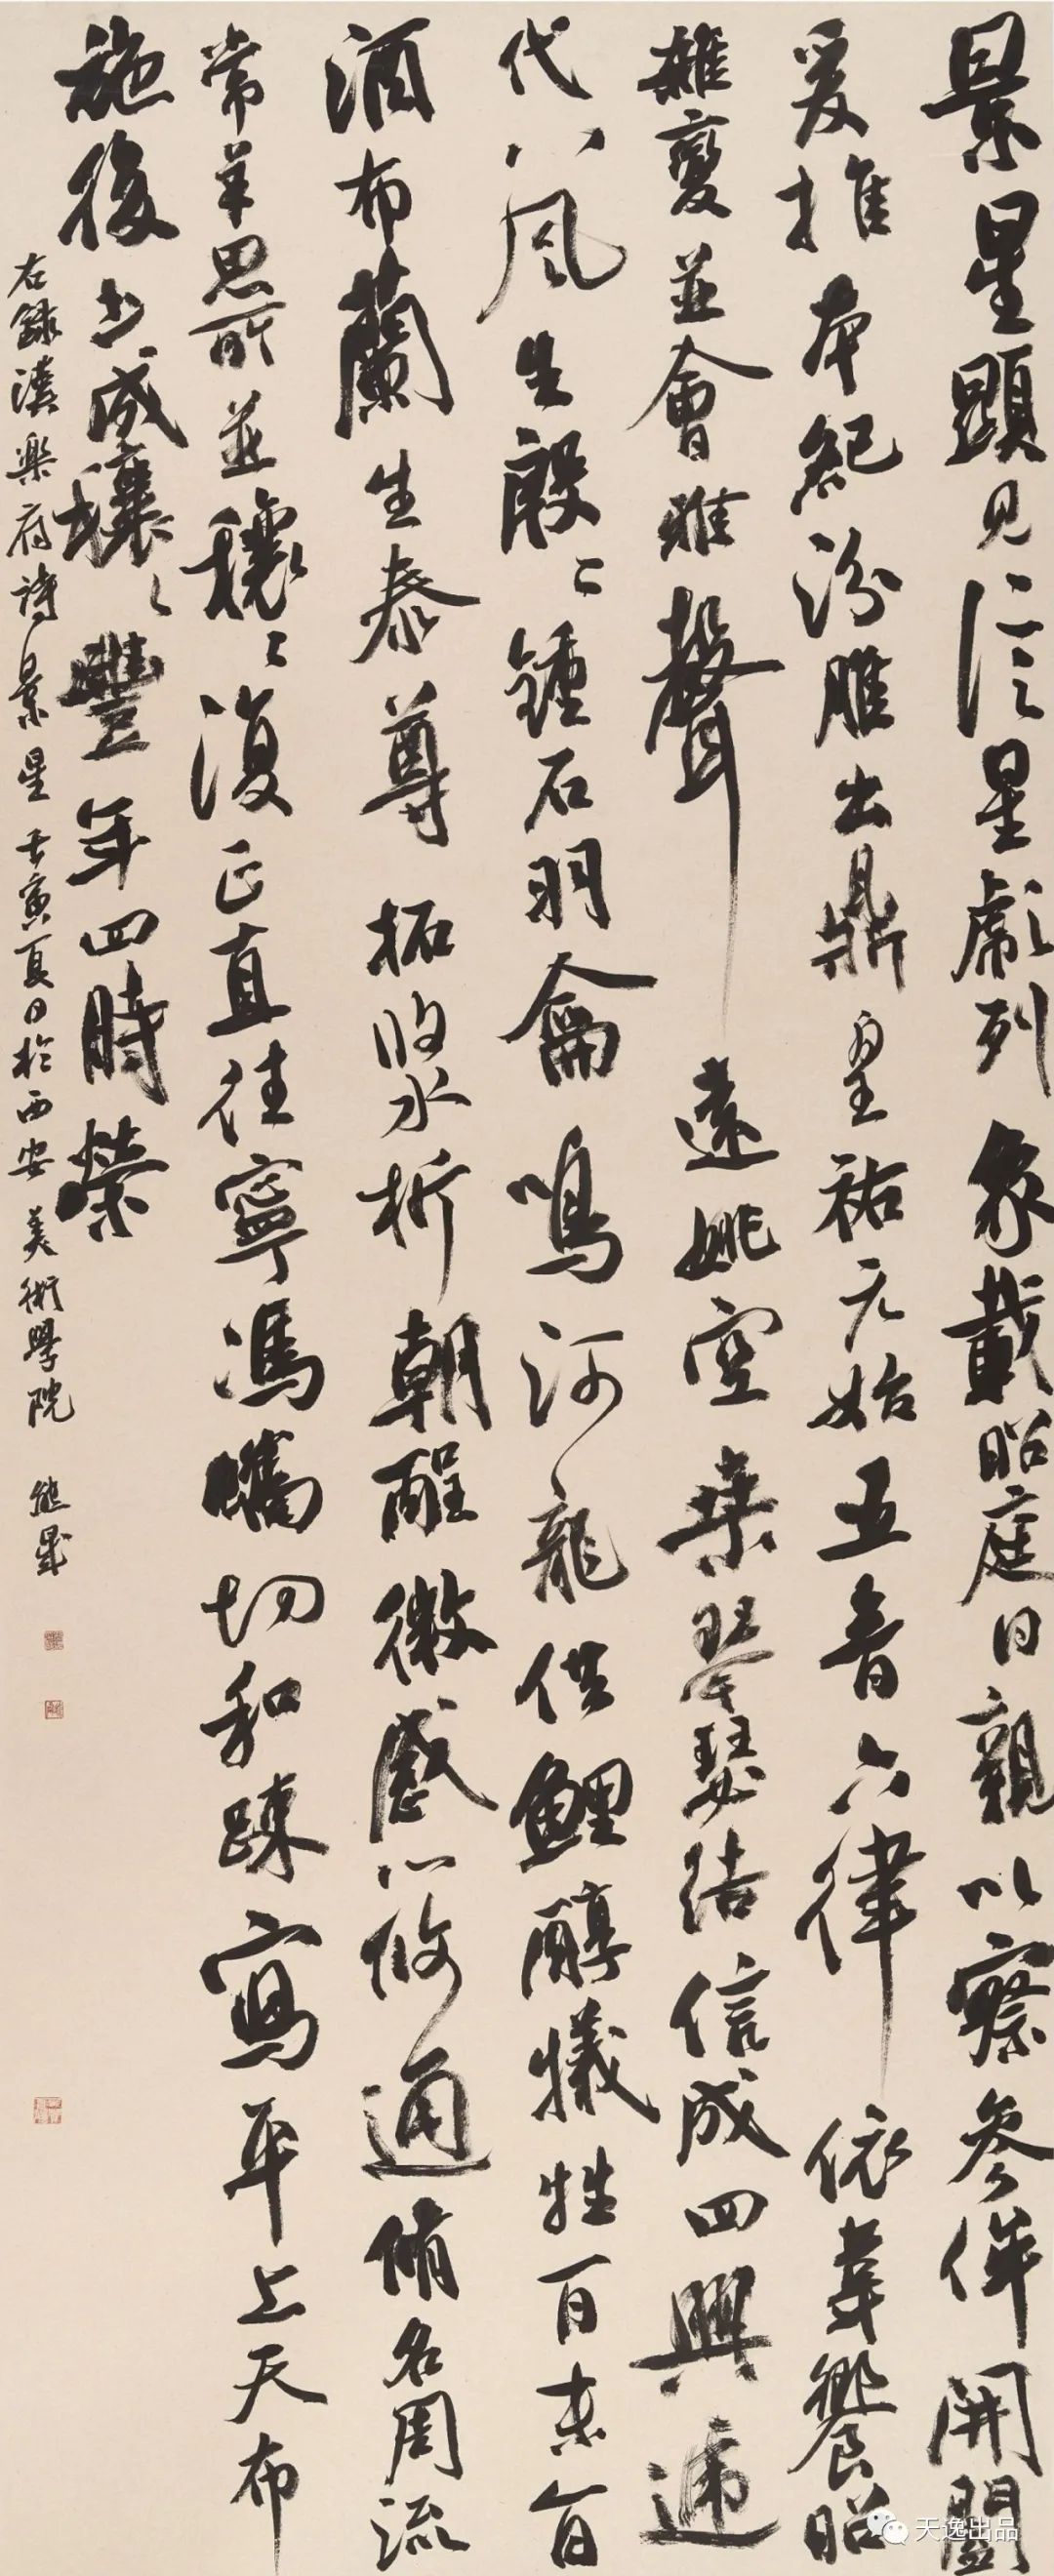 景星顯見信星彪列象載昭庭日親以察參侔開闔
爰推本紀汾脽出鼎皇祐元始五音六律依韋饗昭
雜變並會雅聲遠姚空桑琴瑟結信成四興遞
代八風生殷〻鍾石羽龠鳴河龍供鯉醇犧牲百末旨
酒布蘭生泰尊柘漿析朝酲微感心攸通脩名周流
常羊思所並穰〻復正直往寧馮蠵切和疎寫平上天布
施後土成穰〻豐年四時榮
右錄漢樂府詩景星壬寅夏日於西安美術學院 熊晟
天逸出品